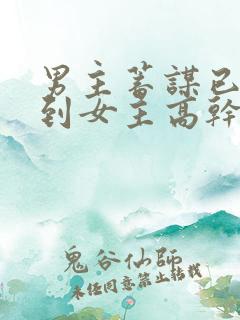 男主蓄謀已
到女主高幹
鬼谷仙師
未经同意禁止转载